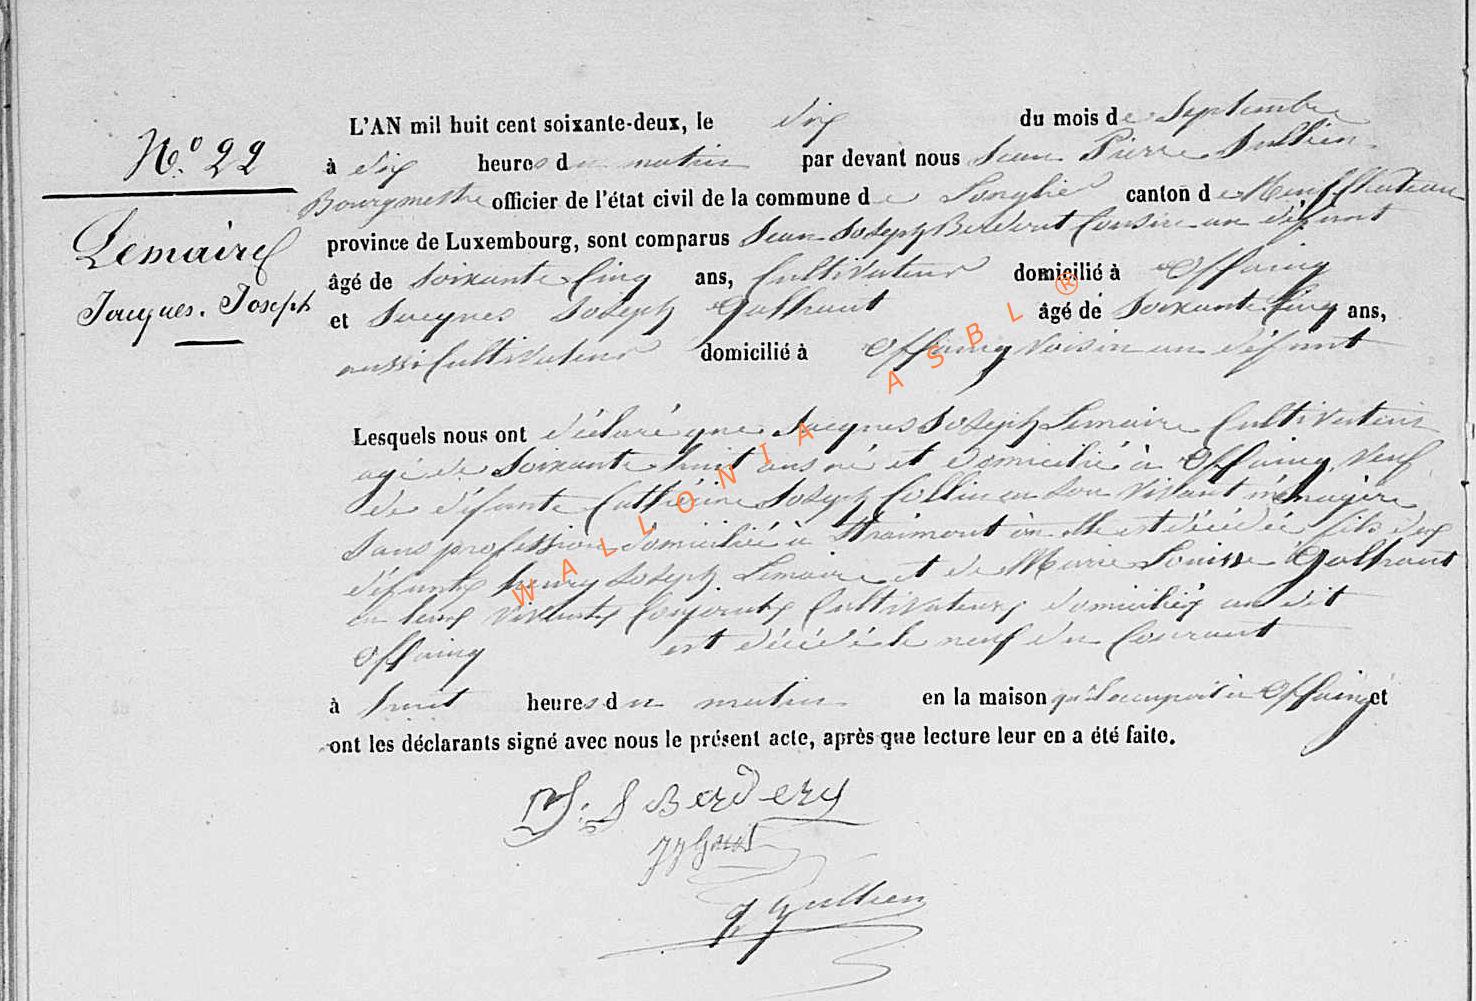 N.° 22
Lemaire
Jacques. Joseph
L'AN mil huit cent soixante-deux, le dix du mois de Septembre
à dix heures du matin par devant nous Jean Pierre
Bourgmestre officier de l'état civil de la commune de Longlier canton de Neufchateau
province de Luxembourg, sont comparus Jean Joseph Cousin au défunt
âgé de Soixante Cinq ans, Cultivateur domicilié à Offaing
et Jacques Joseph âgé de Soixante Cinq ans,
aussi Cultivateur domicilié à Offaing voisin au défunt
Lesquels nous ont déclaré que Jacques Joseph Lemaire Cultivateur
agé de Soixante huit ans né et domicilié à Offaing, veuf
de défunte Cathérine Joseph Collin en son vivant ménagère
sans profession domiciliée à Straimont où elle est décédée fils des
défunts henry Joseph Lemaire et de Marie Louise
en leurs vivants Conjoints Cultivateurs domiciliés au dit
Offaing est décédé le neuf du Courant
à huit heures du matin en la maison qu'il occupait à Offaing et
ont les déclarants signé avec nous le présent acte, après que lecture leur en a été faite.
WALLONIA ASBL ®